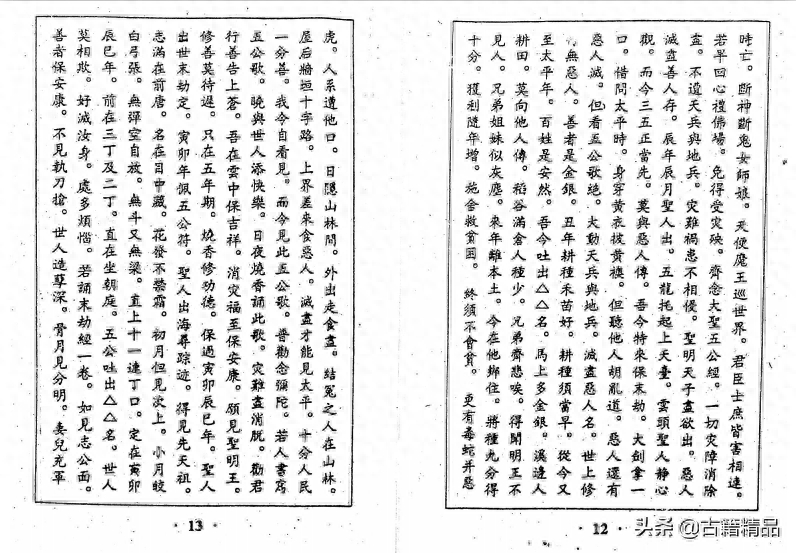 時亡。斷神斷鬼女師娘。天使魔王巡世界。君臣士庶皆害相連。
若早回心禮佛場。免得受灾殃。齊念大聖五公經。一切灾障消除
盡。不遺天兵與地兵。灾難禍患不相侵。聖明天子盡欲出。惡人
滅盡善人存。辰年辰月聖人出。五龍托起上天臺。雲頭聖人静心
觀。而今三五正當先。莫與惡人傳。吾今特來保末劫。大劍拿一
口。借問太平時。身穿黄衣披黄襖。但聽他人胡亂道。惡人還有
惡人滅。但看五公歌絶。大動天兵與地兵。滅盡惡人名。世上修
無惡人。善者是金銀。丑年耕種禾苗好。耕種須當早。從今又
至太平年。百姓是安然。吾今吐出△△名。馬上多金銀。溪邊人
耕田。莫向他人傳。稻谷滿倉人種少。兄弟齊悲唉。得聞明王不
見人。兄弟姐妹似灰塵。來年離本土。今在他鄉住。將種九分得
十分。獲利隨年增。施舍救貧困。終須不會貧。更有毒蛇并惡
·12·
虎。人系遭他口。日隱山林間。外出走食盡。結冤之人在山林。
屋后牆垣十字路。上界差來食惡人。滅盡才能見太平。十分人民
一分善。我今自看見。而今見此五公歌。普勸念彌陀。若人書寫
五公歌。曉與世人添快樂。日夜燒香誦此歌。灾難盡消脱。勸君
行善告上蒼。吾在雲中保吉祥。消灾福至保安康。願見聖明王。
修善莫待遲。只在五年期。燒香修功德。保過寅卯辰巳年。聖人
出世末劫定。寅卯年佩五公符。聖人出海尋踪迹。得見先天祖。
志滿在前唐。名在目中藏。花發不禁霜。初月但見汝上。小月皎
白弓張。無彈空自放。無斗又無梁。直上十一連丁口。定在寅卯
辰巳年。前在三丁及二丁。直在坐朝庭。五公吐出△△名。世人
莫相欺。好滅汝身。處多煩惱。若誦末劫經一卷。如見志公面。
善者保安康。不見執刀搶。世人造孽深。骨月見分明。妻兒充軍
·13·
头条 @古籍精品